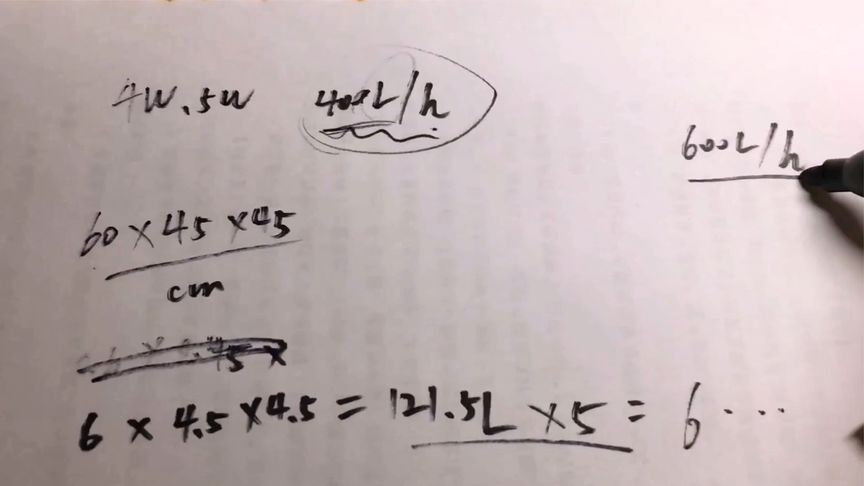 4W.5W 400L/h
600L/h
60×45×45
cm
6×4.5×4.5=121.5L×5=6...